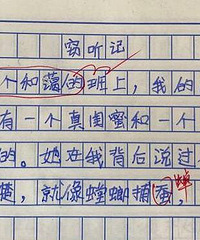 窃听记
个和蔼的班上，我的
有一个真闺蜜和一个
的。她在我背后说过
楚，就像螳螂捕蚕，蝉